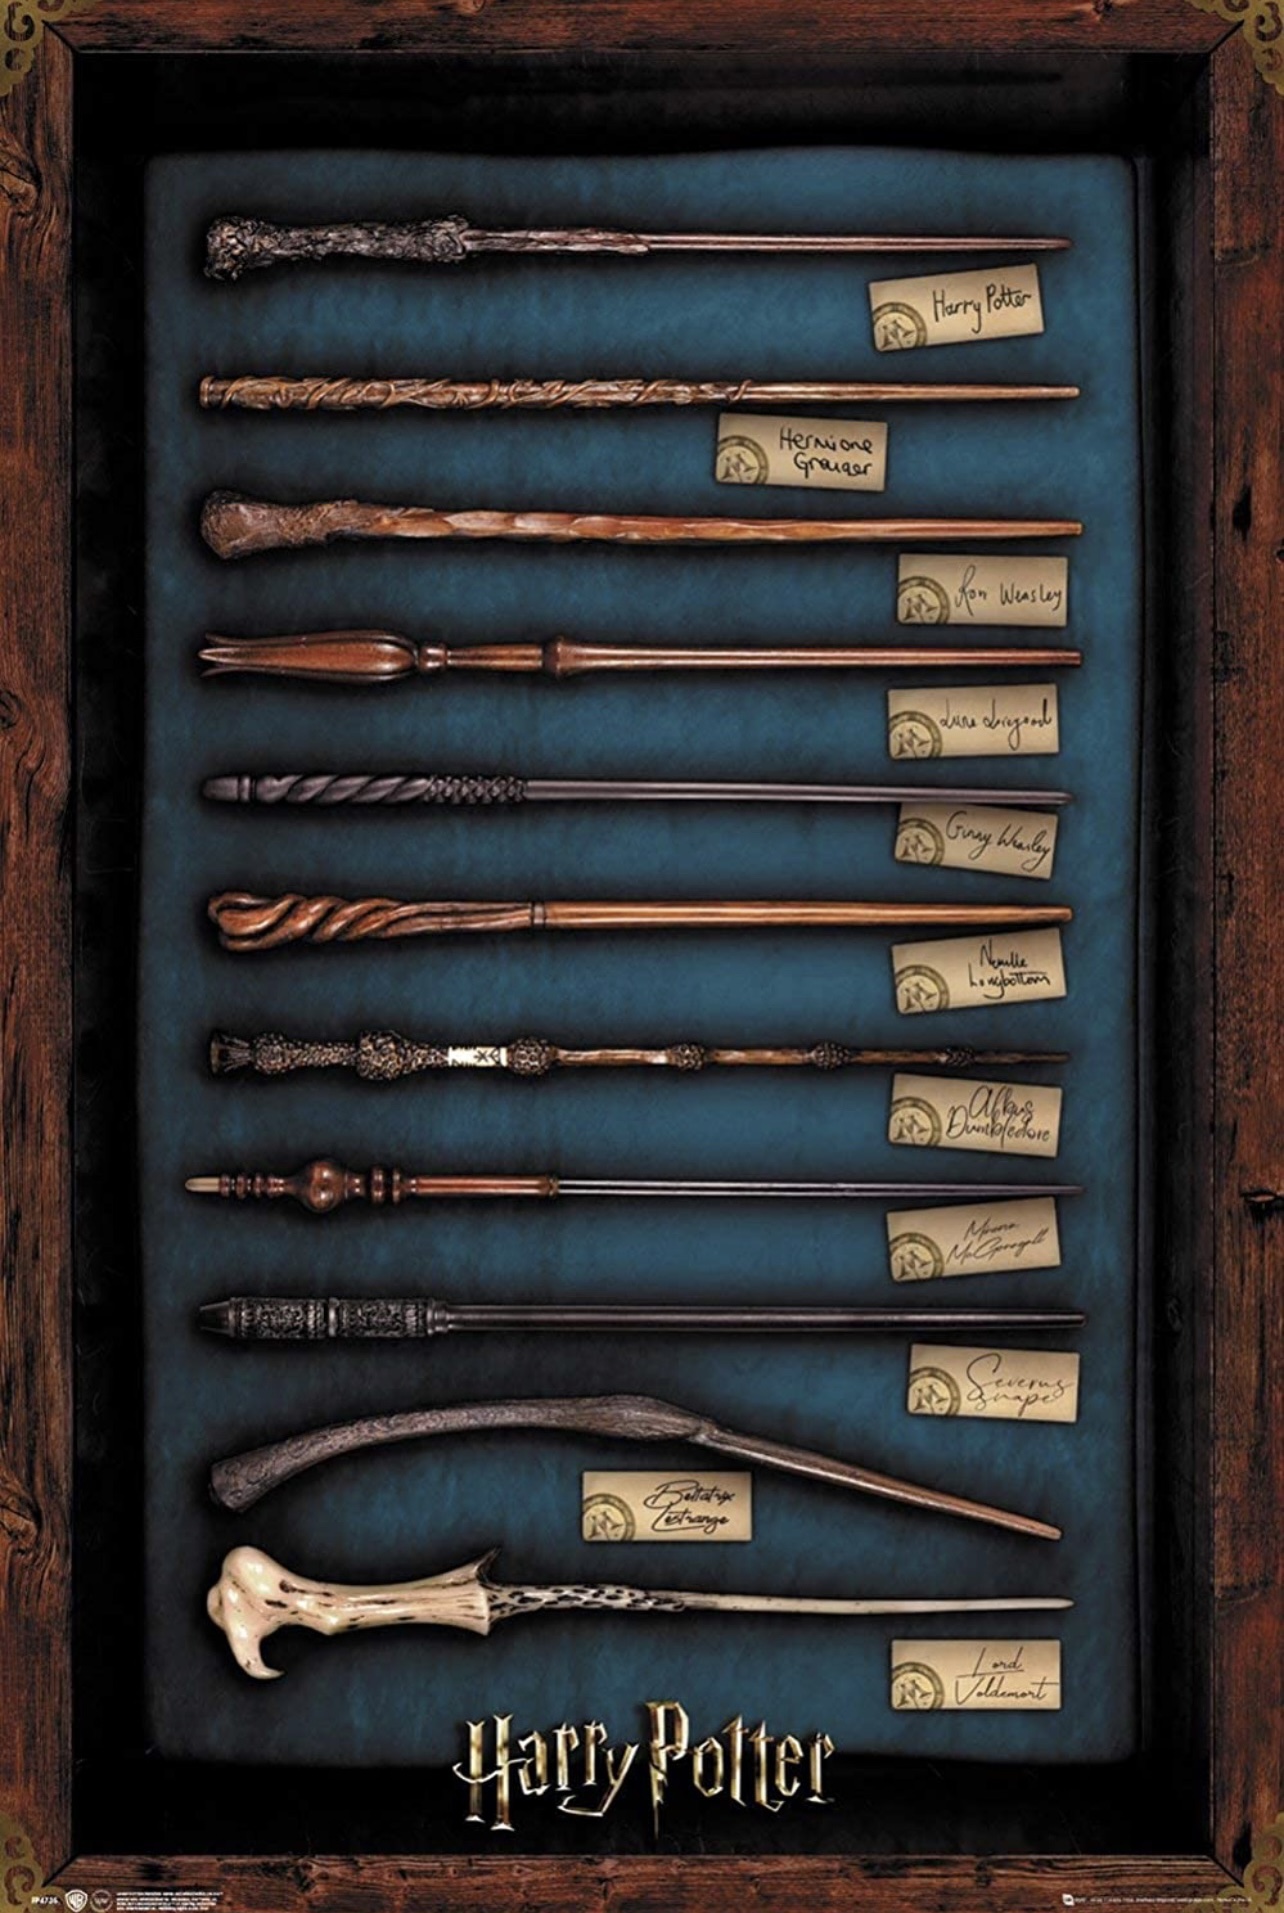 Harry Potter
Hermione
Granger
Ron Weasley
Luna Lovegood
Ginny Weasley
Neville
Longbottom
Albus
Dumbledore
Minerva
McGonagall
Severus
Snape
Bellatrix
Lestrange
Lord
Voldemort
Harry Potter
WB